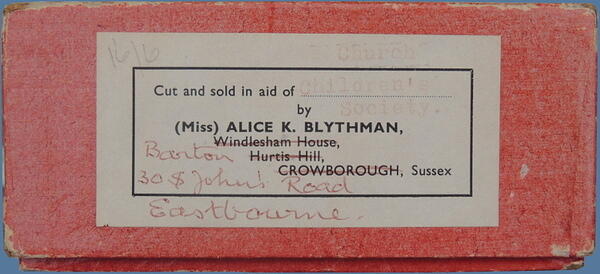 16/6
Church
Cut and sold in aid of Children's
by Society.
(Miss) ALICE K. BLYTHMAN,
Windlesham House,
Barton Hurtis Hill,
CROWBOROUGH, Sussex
30 St John's Road
Eastbourne.